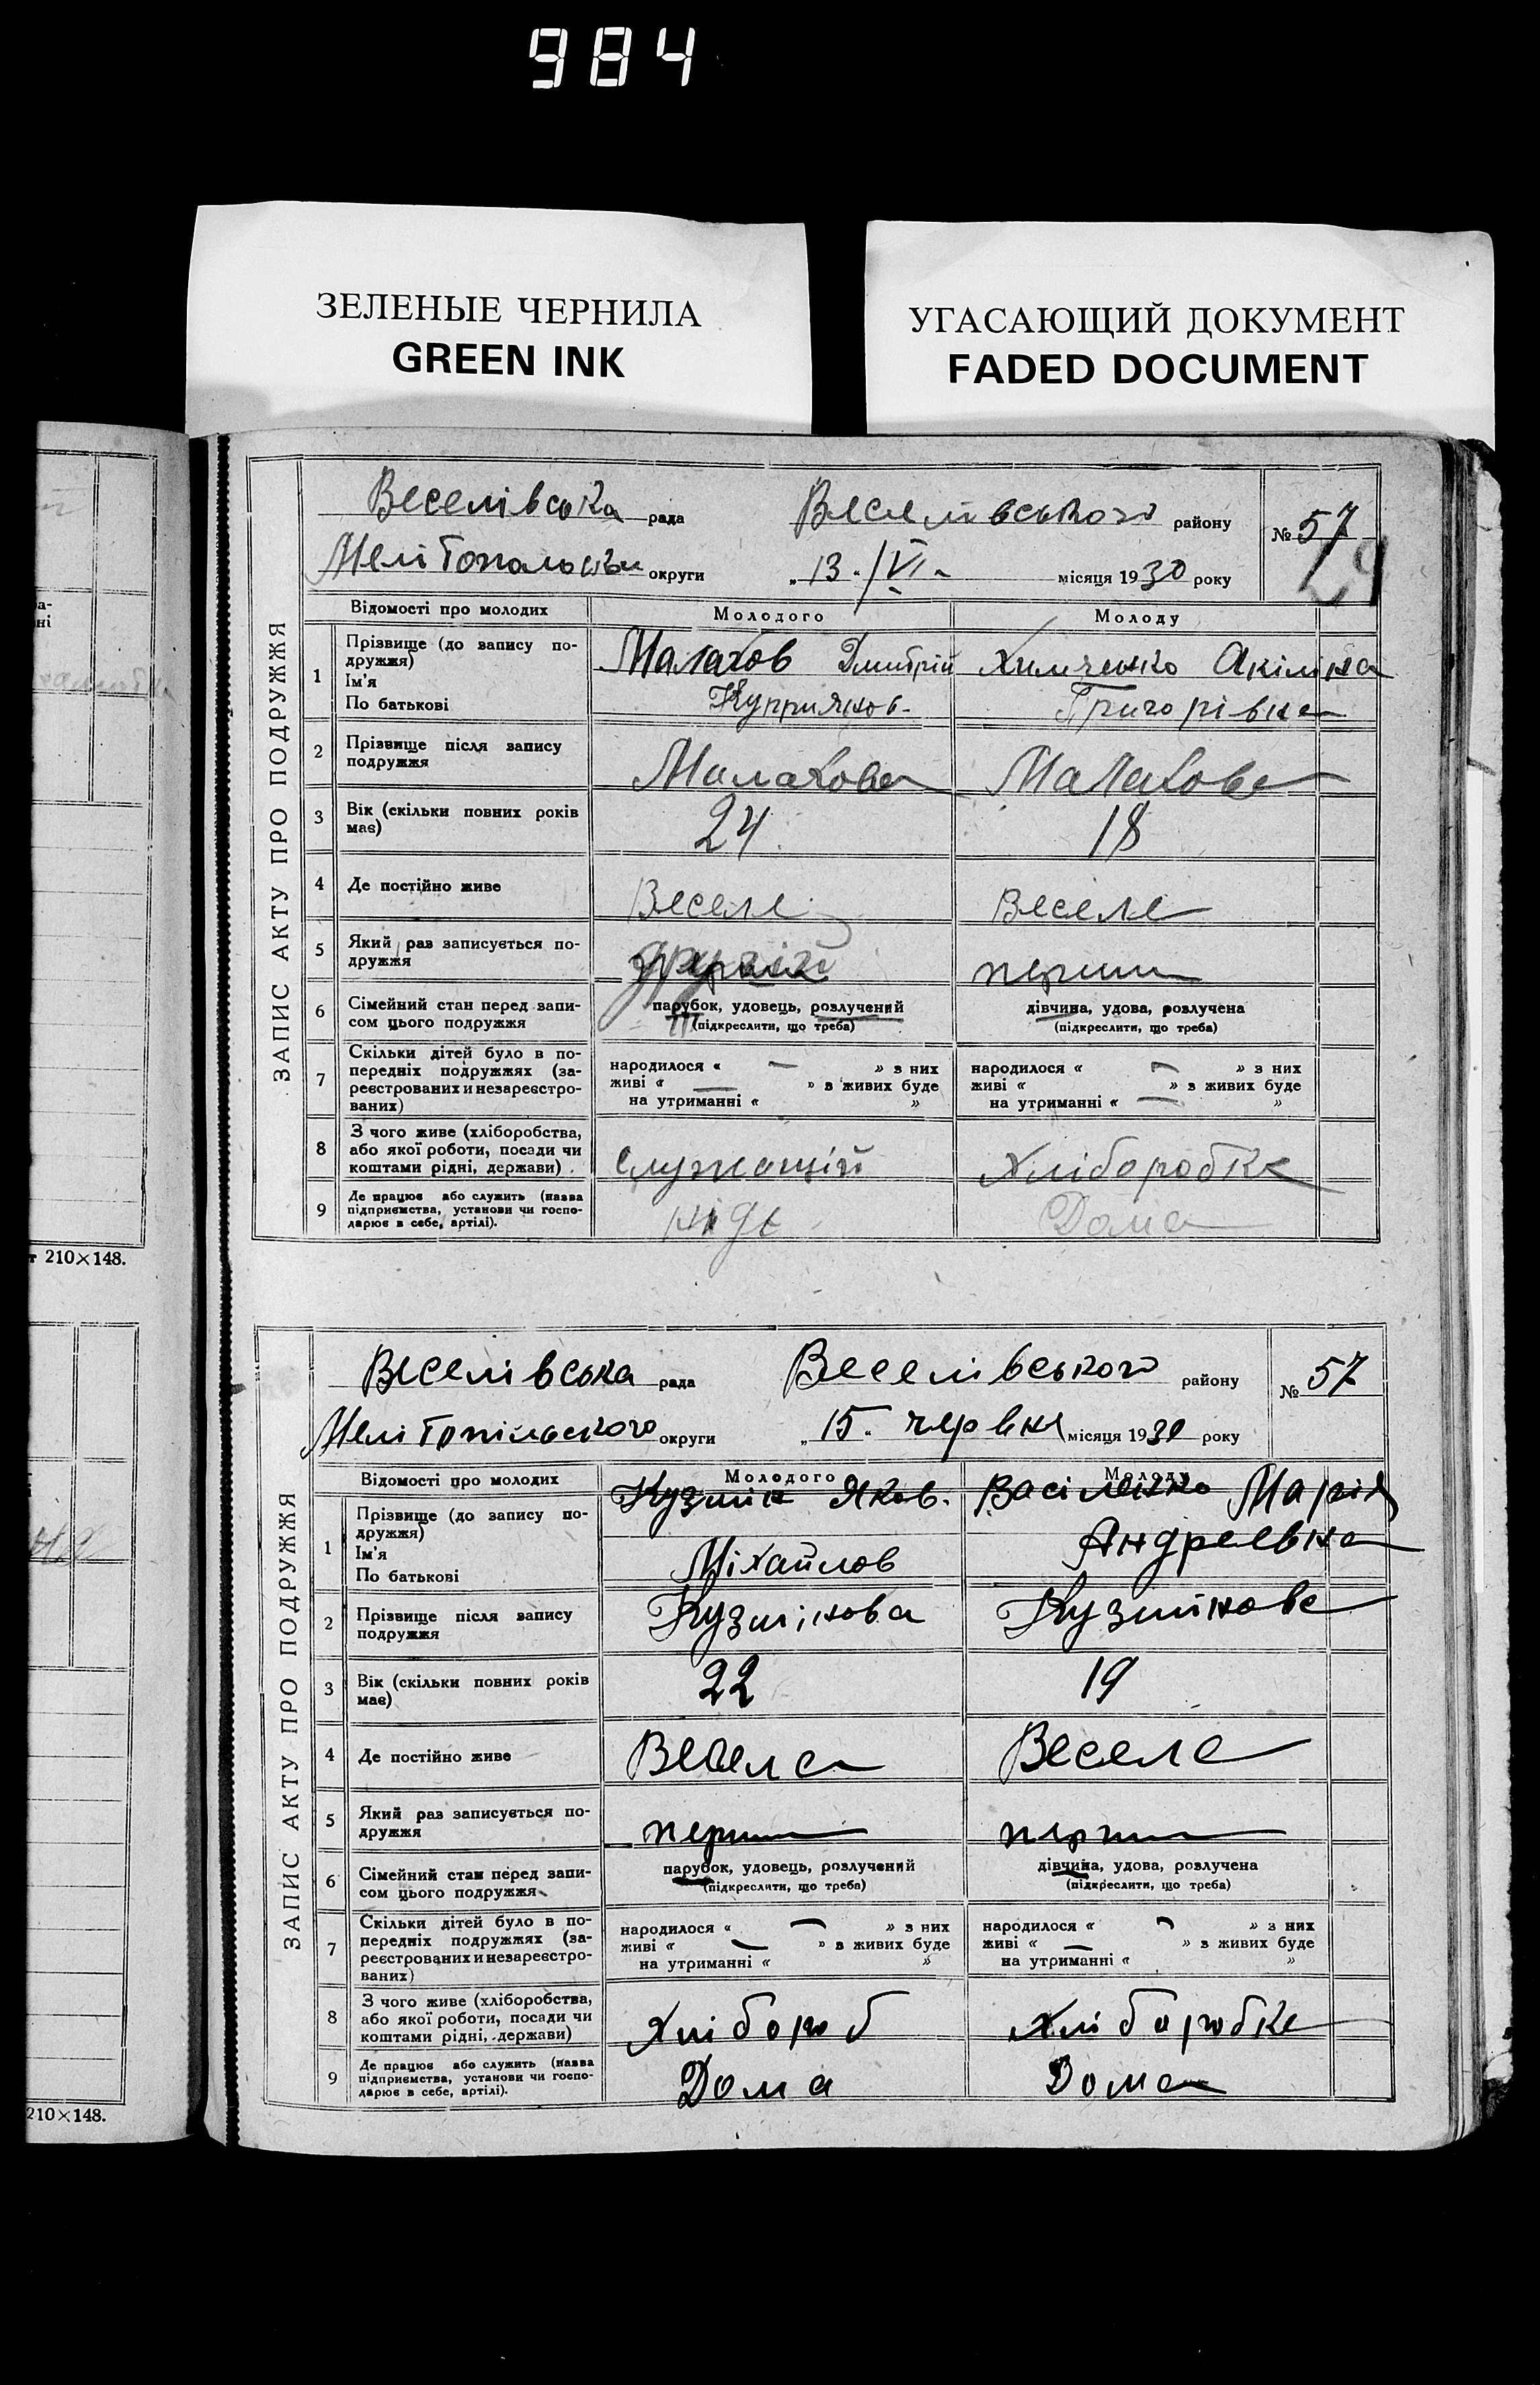 984
ЗЕЛЕНЫЕ ЧЕРНИЛА
GREEN INK
УГАСАЮЩИЙ ДОКУМЕНТ
FADED DOCUMENT
210×148.
210×148.
ЗАПИС АКТУ ПРО ПОДРУЖЖЯ
Веселівська рада Веселівського району № 57
округи „13. VI місяця 1930 року
Відомості про молодих Молодого Молоду
1 Прізвище (до запису подружжя) Ім'я По батькові
Малахов Дмитрій Химченко Акіліна
Куприянов. Григорівна
2 Прізвище після запису подружжя Малахова Малахова
3 Вік (скільки повних років має) 24 18
4 Де постійно живе Веселе Веселе
5 Який раз записується подружжя другий перший
6 Сімейний стан перед записом цього подружжя парубок, удовець, розлучений дівчина, удова, розлучена
(підкреслити, що треба) (підкреслити, що треба)
7 Скільки дітей було в попередніх подружжях (зареєстрованих и незареєстрованих)
народилося « — » з них народилося « — » з них
живі « — » з живих буде живі « » з живих буде
на утриманні « » на утриманні « — »
8 З чого живе (хліборобства, або якої роботи, посади чи коштами рідні, держави). Служощій Хліборобка
9 Де працює або служить (назва підприємства, установи чи господарює в себе, артілі). ніде Дома
ЗАПИС АКТУ ПРО ПОДРУЖЖЯ
Веселівська рада Веселівського району № 57
Мелітопільского округи „15. червня місяця 1930 року
Відомості про молодих Молодого Молоду
1 Прізвище (до запису подружжя) Ім'я По батькові
Кузмін Яков. Васіленко Марія
Міхайлов Андреевна
2 Прізвище після запису подружжя Кузмінова Кузмінова
3 Вік (скільки повних років має) 22 19
4 Де постійно живе Веселе Веселе
5 Який раз записується подружжя перший перший
6 Сімейний стан перед записом цього подружжя парубок, удовець, розлучений дівчина, удова, розлучена
(підкреслити, що треба) (підкреслити, що треба)
7 Скільки дітей було в попередніх подружжях (зареєстрованих и незареєстрованих)
народилося « — » з них народилося « — » з них
живі « — » з живих буде живі « — » з живих буде
на утриманні « » на утриманні « »
8 З чого живе (хліборобства, або якої роботи, посади чи коштами рідні, держави) Хлібороб Хліборобка
9 Де працює або служить (назва підприємства, установи чи господарює в себе, артілі). Дома Дома